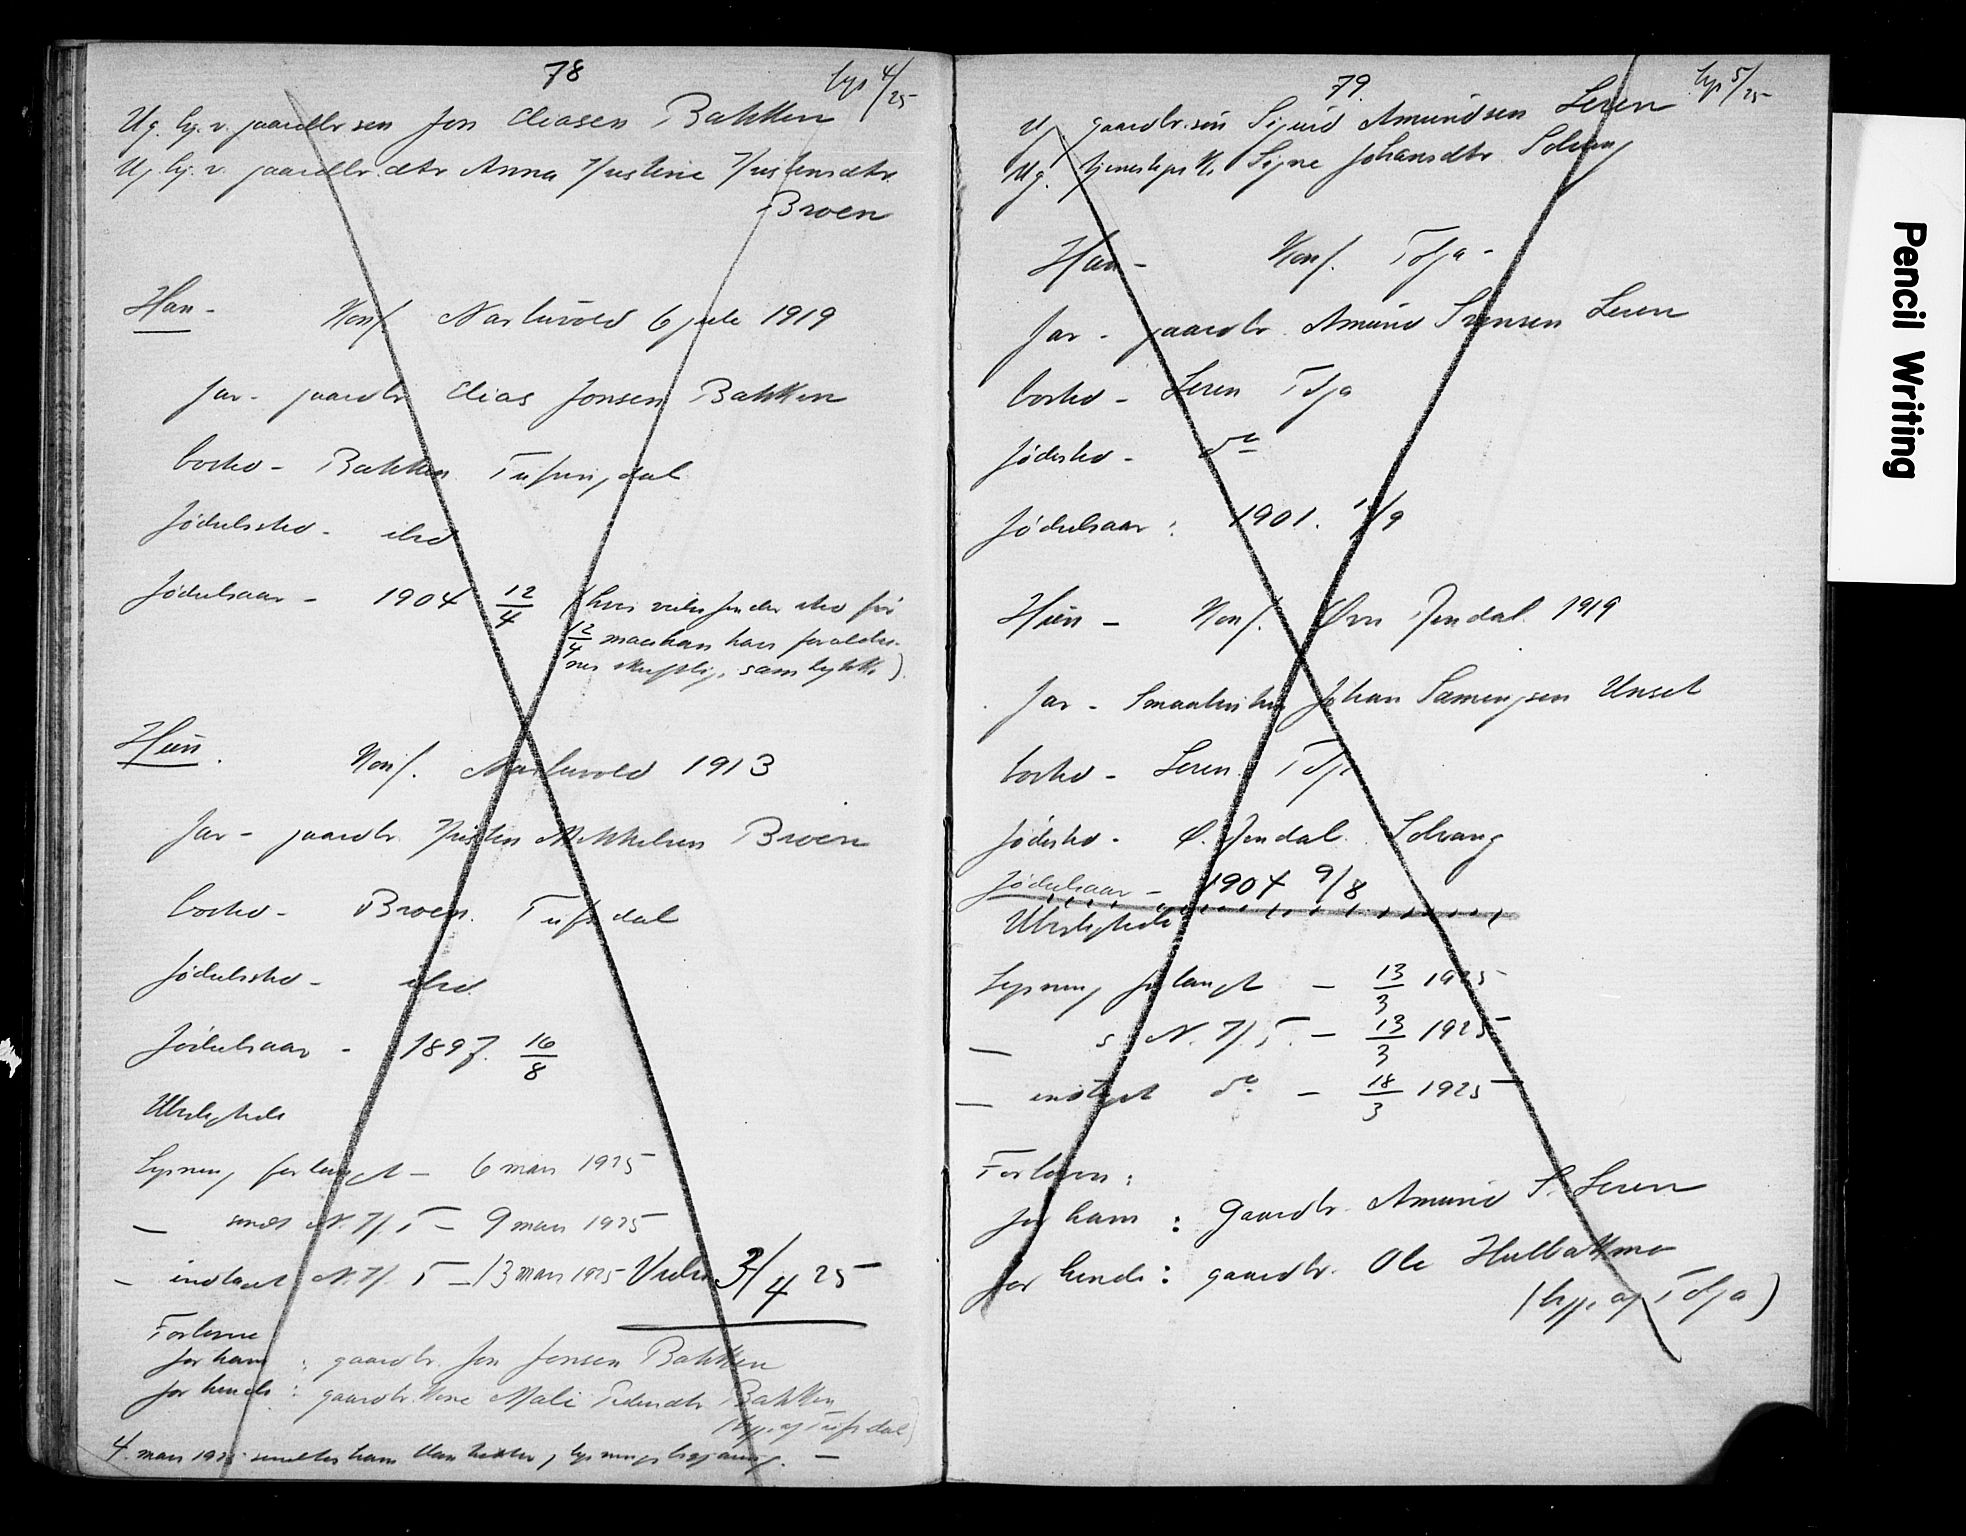 78
lys 4/25
Ug. hj. v. gaardbr søn Jon Eliasen Bakken
Ug. hj. v. gaardbr. dtr Anna Justine Justensdtr.
Broen
Han - Konf. Narbuvold 6 juli 1919
Far - gaardbr Elias Jonsen Bakken
bosted - Bakken Tufsingdal
Fødselssted - ibid
Fødselsaar - 1904 12/4 (hvis vielse finder sted før
12/4 maa han have forældre-
nes skriftlig. samtykke)
Hun. Konf. Narbuvold 1913
Far - gaardbr. Justen Mikkelsen Broen
bosted - Broen. Tufsdal
Fødselssted - ibid.
Fødselsaar - 1897. 16/8
Ubeslegtede
Lysning forlangt - 6 mars 1925
— sendt N. H. T - 9 mars 1925
— indtaget N. H. T - 13 mars 1925 Viede 3/4 25
Forlovere
for ham : gaardbr. Jon Jonsen Bakken
for hende : gaardbr. kone Mali Pedersdtr Bakken
(begge af Tufsdal)
4. mars 1925 sendtes ham lysnings begjæring. —
79.
lys 5/25
Ug. gaardbr. søn Sigurd Amundsen Leren
Ug. tjenestepike Signe Johansdtr. Solvang
Han - Konf. Tolga -
Far - gaardbr. Amund Simensen Leren
bosted - Leren Tolga
fødested - do
Fødselsaar : 1901. /9
Hun - Konf. Øvre Rendal. 1919
Far - Smaabruker Johan Unset
bosted - Leren Tolga
fødested - Ø. Rendal. Solvang
Fødselsaar - 1904 9/8
Ubeslegtede
Lysning forlangt - 13/3 1925
— s. N. H. T. - 13/3 1925
— indtaget do - 18/3 1925
Forlovere :
for ham : gaardbr. Amund S. Leren
for hende : gaardbr. Ole Hulbakmo
(begge af Tolga)
Pencil Writing